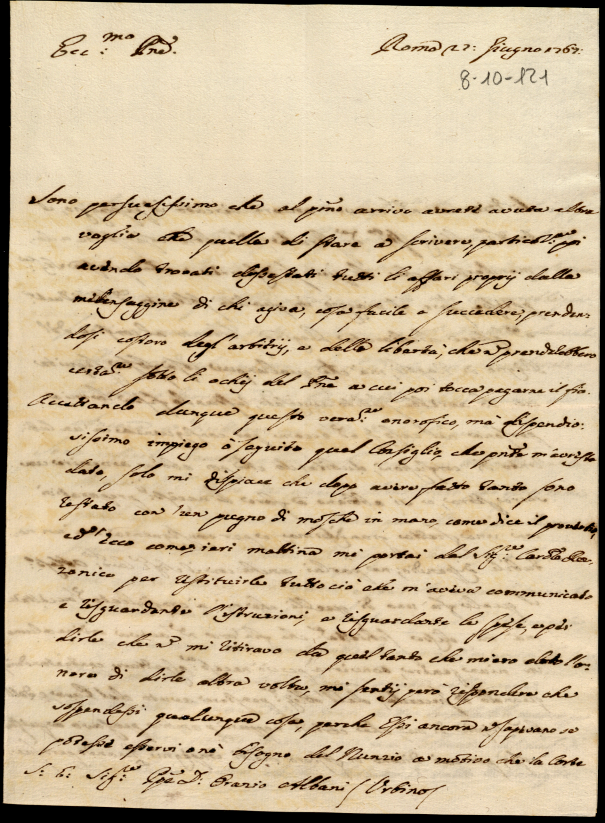 Ecc:mo Pne.
Roma 27: Giugno 1761:
8-10-121
Sono persuasissimo che al pmo arrivo avrete avuta altra
voglia che quella di stare a scrivere, particol:re poi
avendo trovati dissestati tutti li affari proprij dalla
melensaggine di chi agiva, cosa facile a succedere, prenden-
dosi costoro degl'arbitrij, e delle libertà, che n prenderebbero
certa:te sotto li occhij del Pne a cui poi tocca pagarne il fio.
Accettando dunque questo vera:te onorofico, mà dispendio:
sissimo impiego ò seguito quel Consiglio, che pnte m'avreste
dato, solo mi dispiace che dopp avere fatto tanto sono
restato con un pugno di mosche in mano, come dice il
ed Ecco come, ieri mattina mi portai dal Sig:re Cardle
zonico per restituirle tutto ciò che m'aveva communicato
e risguardante l'istruzioni, e risguardante le spese, e per
dirle che n mi ritiravo da quel tanto che m'ero dato l'o:
nore di dirle altra volta, mi sentij però rispondere che
sospendessi qualunque cosa, perche Essi ancora n sapevano se
potesse esservi o nò bisogno del Nunzio a motivo che la Corte
S: b: Sig:re Ppe D: Orazio Albani / Urbino /